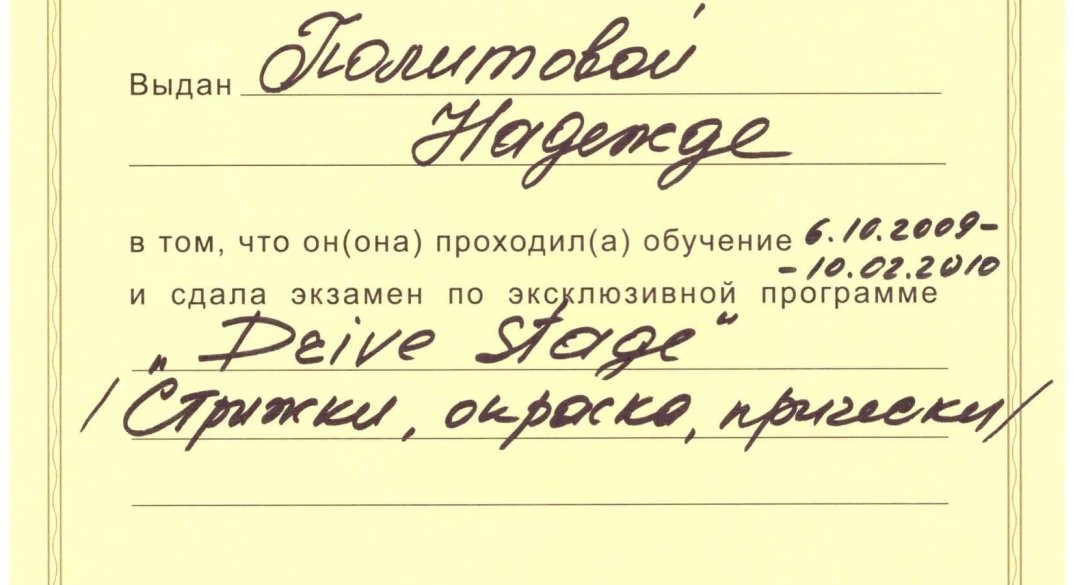 Выдан Политовой
Надежде
в том, что он(она) проходил(а) обучение 6.10.2009-
- 10.02.2010
и сдала экзамен по эксклюзивной программе
„Drive Stage“
/Стрижки, окраска, прически/